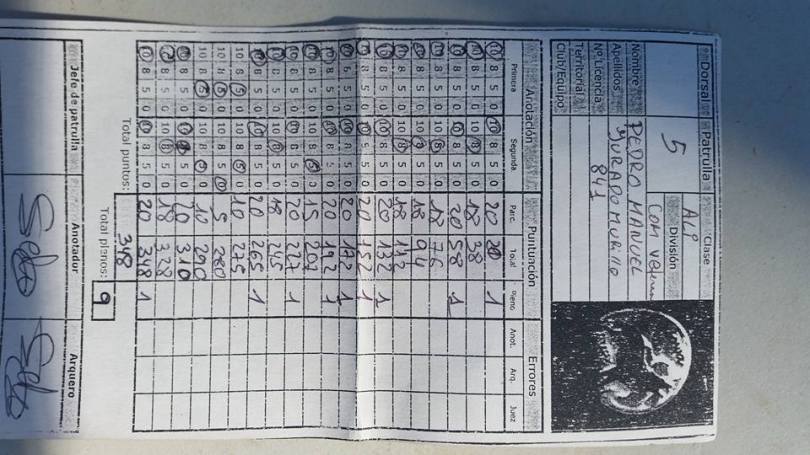 Dorsal Patrulla Clase
5 ALP
División
COM Veterano
Nombre PEDRO MANUEL
Apellidos JURADO MURILLO
Nº Licencia 841
Territorial
Club/Equipo
Anotación Puntuación Errores
Primera Segunda Parc. Total Pleno Anot. Arq. Juez
10 8 5 0 10 8 5 0 20 20 1
10 8 5 0 10 8 5 0 18 38
10 8 5 0 10 8 5 0 20 58 1
10 8 5 0 10 8 5 0 18 76
10 8 5 0 10 8 5 0 18 94
10 8 5 0 10 8 5 0 18 112
10 8 5 0 10 8 5 0 20 132 1
10 8 5 0 10 8 5 0 20 152 1
10 8 5 0 10 8 5 0 20 172 1
10 8 5 0 10 8 5 0 20 192 1
10 8 5 0 10 8 5 0 15 207
10 8 5 0 10 8 5 0 20 227 1
10 8 5 0 10 8 5 0 18 245
10 8 5 0 10 8 5 0 20 265 1
10 8 5 0 10 8 5 0 10 275
10 8 5 0 10 8 5 0 5 280
10 8 5 0 10 8 5 0 10 290
10 8 5 0 10 8 5 0 20 310
10 8 5 0 10 8 5 0 18 328
10 8 5 0 10 8 5 0 20 348 1
Total puntos: 348
Total plenos: 9
Jefe de patrulla Anotador Arquero